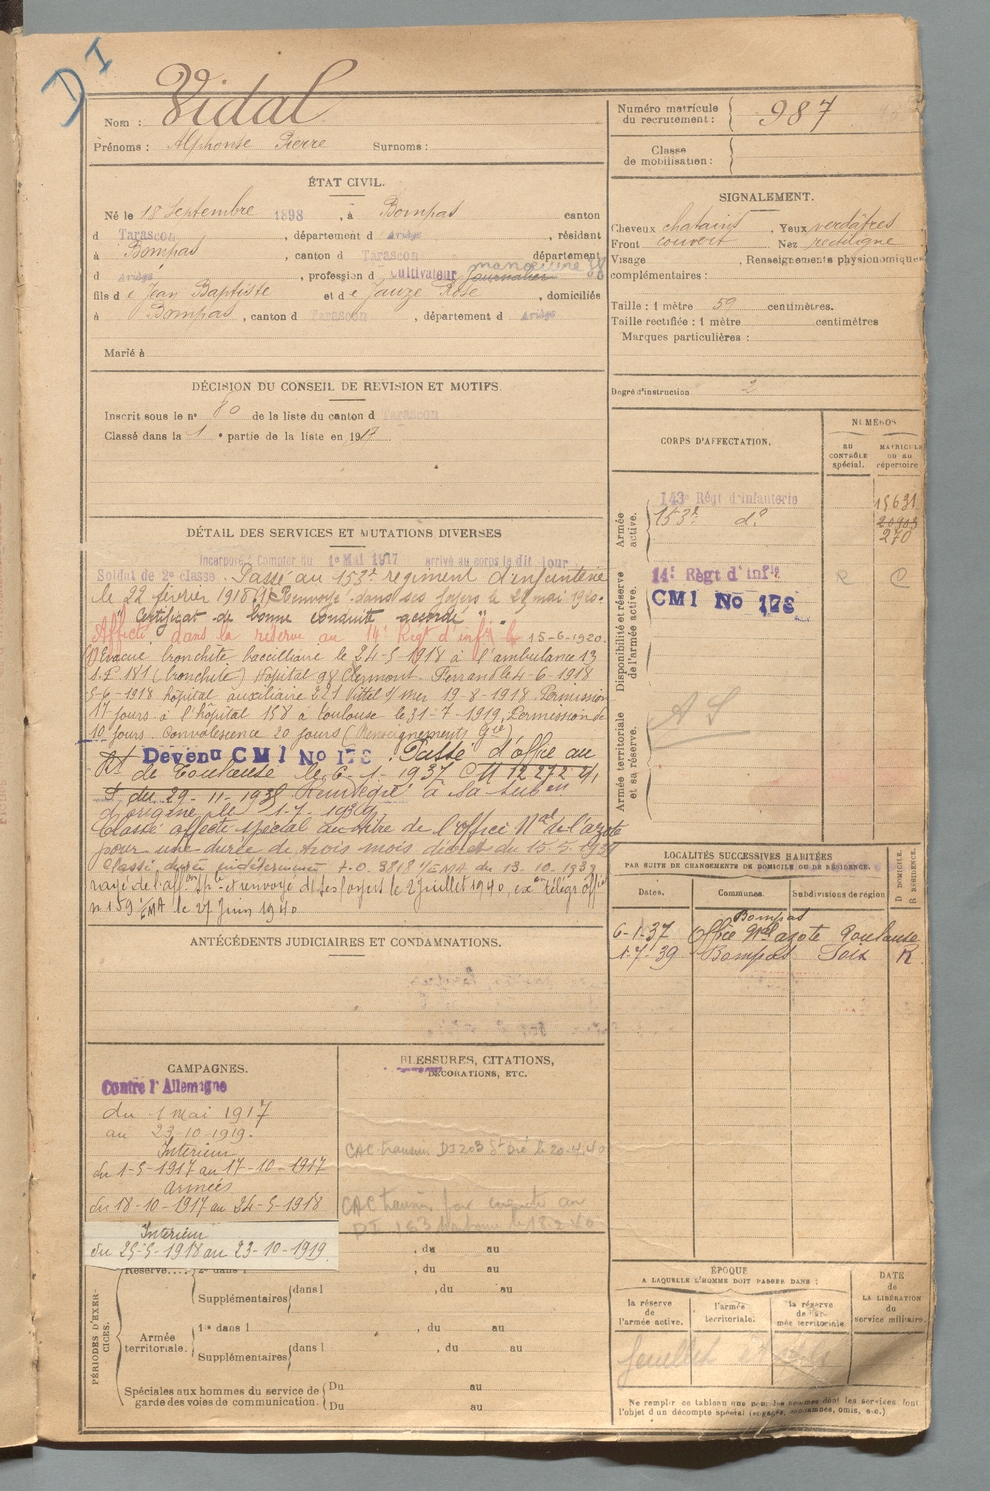 D I
Nom : Vidal
Prénoms : Alphonse Pierre Surnoms :
Numéro matricule du recrutement : 987
Classe de mobilisation :
ÉTAT CIVIL.
Né le 18 Septembre 1898, à Bompas canton
d Tarascon, département d Ariège, résidant
à Bompas, canton d Tarascon département
d Ariège, profession d cultivateur journalier manoeuvre 38
fils d e Jean Baptiste et d e Jauze Rose, domiciliés
à Bompas, canton d Tarascon, département d Ariège
Marié à
SIGNALEMENT.
Cheveux chatains, Yeux verdâtres
Front couvert Nez rectiligne
Visage, Renseignements physionomiques
complémentaires :
Taille : 1 mètre 59 centimètres.
Taille rectifiée : 1 mètre centimètres
Marques particulières :
Degré d'instruction 2
DÉCISION DU CONSEIL DE REVISION ET MOTIFS.
Inscrit sous le n° 80 de la liste du canton d Tarascon
Classé dans la 1e partie de la liste en 1917
DÉTAIL DES SERVICES ET MUTATIONS DIVERSES
Incorporé à Compter du 1e Mai 1917 arrivé au corps le dit jour
Soldat de 2e classe. Passé au 153e régiment d'infanterie
le 22 février 1918 (1) Renvoyé dans ses foyers le 24 mai 1920.
Certificat de bonne conduite accordé
Affecté dans la réserve au 14e Régt d'infie le 15-6-1920.
(1) Evacué bronchite bacillaire le 24-5-1918 à l'ambulance 13
S.P. 181 (bronchite) Hôpital 98 Clermont-Ferrand le 4-6-1918
5-6-1918 hôpital auxiliaire 221 Vittel s/ Mer 19-8-1918. Permission
17 jours à l'hôpital 158 à Toulouse le 31-7-1919, Permission de
10 jours. Convalescence 20 jours (Renseignements Gie)
Devenu CM I No 178. Passé d'office au
de Toulouse le 6-1-1937 CM 12272 9/1
du 29-11-1935 Réintégré à sa subon
d'origine le 1-7-1939
Classé affecté spécial au titre de l'Office Nal de l'azote
pour une durée de trois mois du 15-5-1939
Classé durée indéterminée T.O. 3818 1/EMA du 13-10-1939
rayé de l'affon sple et renvoyé ds ses foyers le 2 juillet 1940, exon télégr offel
n 159 1/EMA le 27 Juin 1940
ANTÉCÉDENTS JUDICIAIRES ET CONDAMNATIONS.
CAMPAGNES.
Contre l'Allemagne
du 1 mai 1917
au 23-10-1919.
Intérieur
du 1-5-1917 au 17-10-1917
Armées
du 18-10-1917 au 24-5-1918
Intérieur
du 25-5-1918 au 23-10-1919.
BLESSURES, CITATIONS,
DÉCORATIONS, ETC.
CAC transm DI 203 le 20.4.40
CAC transm pour enquête au
DI 163 Narbonne le 18.2.40
PÉRIODES D'EXERCICES.
Réserve.... 2e dans l, du au
Supplémentaires dans l, du au
Armée territoriale. 1re dans l, du au
Supplémentaires dans l, du au
Spéciales aux hommes du service de garde des voies de communication. Du au
Du au
CORPS D'AFFECTATION.
NUMÉROS
AU CONTRÔLE spécial.
MATRICULE OU AU répertoire
Armée active.
143e Régt d'infanterie 15631
153e do 20903
270
Disponibilité et réserve de l'armée active.
14e Régt d'infie R C
CM I No 178
Armée territoriale et sa réserve.
A S
LOCALITÉS SUCCESSIVES HABITÉES
PAR SUITE DE CHANGEMENTS DE DOMICILE OU DE RÉSIDENCE.
Dates. Communes. Subdivisions de région D DOMICILE. R RÉSIDENCE.
Bompas
6-1-37 Office Nal azote Toulouse
1-7-39 Bompas Foix R
ÉPOQUE
A LAQUELLE L'HOMME DOIT PASSER DANS :
la réserve de l'armée active.
l'armée territoriale.
la réserve de l'armée territoriale.
DATE de LA LIBÉRATION du service militaire.
Ne remplir ce tableau que pour les hommes dont les services font
l'objet d'un décompte spécial (engagés, condamnés, omis, etc.)